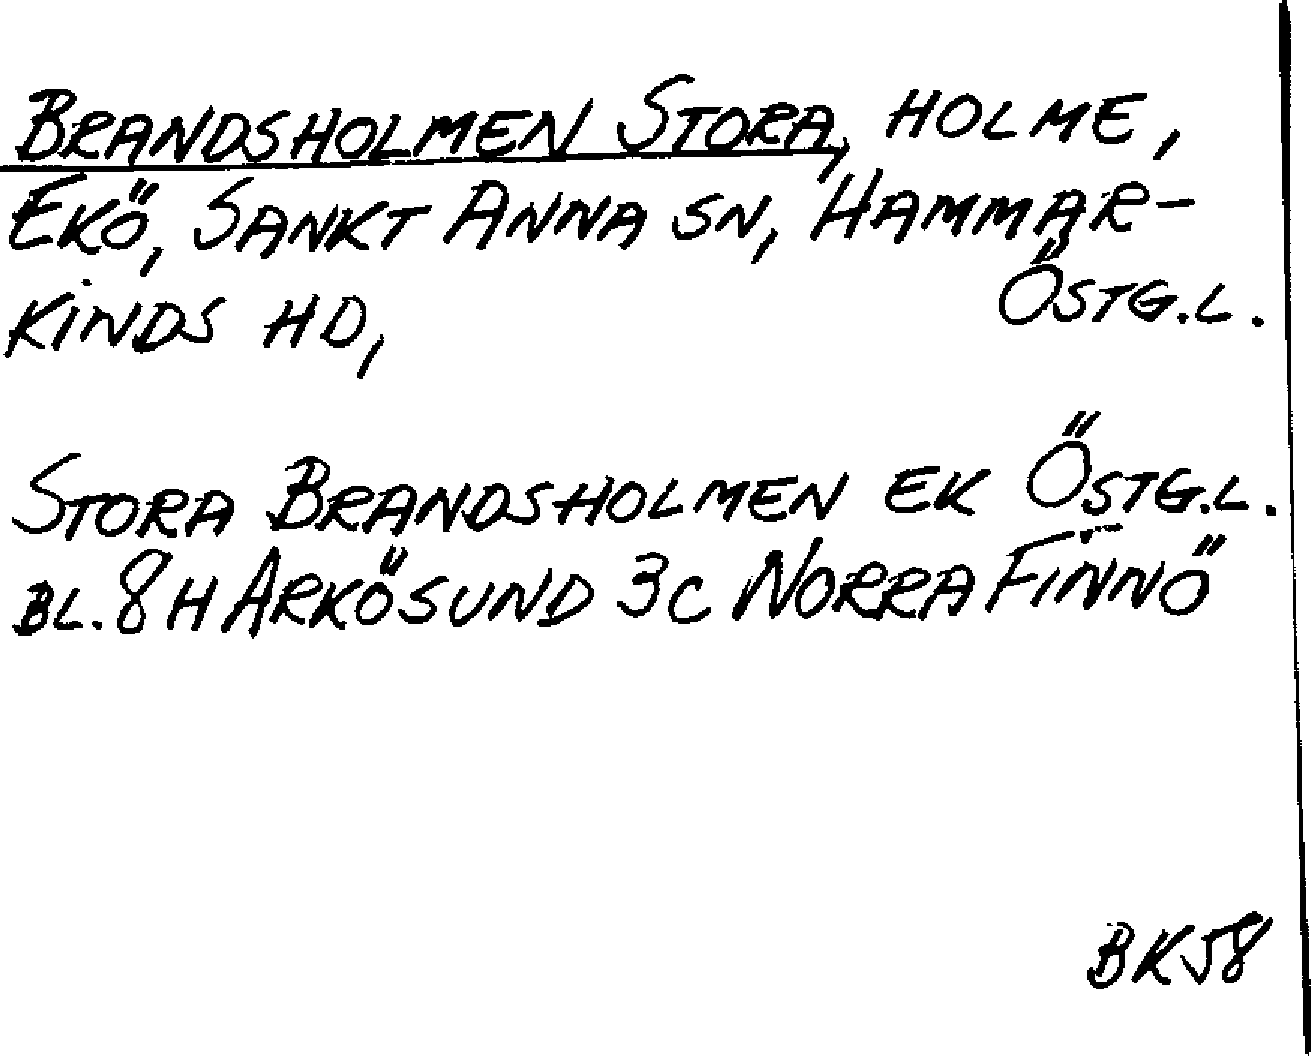 BRANDSHOLMEN STORA, HOLME,
EKÖ, SANKT ANNA SN, HAMMAR-
KINDS HD, ÖSTG.L.
STORA BRANDSHOLMEN EK ÖSTG.L.
BL. 8H ARKÖSUND 3C NORRA FINNÖ
BK58